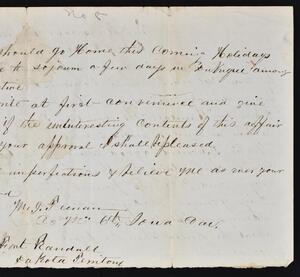 No 8
should go Home this coming Holidays
to sojourn a few days in Dubuque among
at first convenience and give
if the uninteresting contents of this affair
your approval I shall be pleased
imperfections & believe me as ever your
Co "M" 6th Iowa Cav.
Randall
Dakota Territory